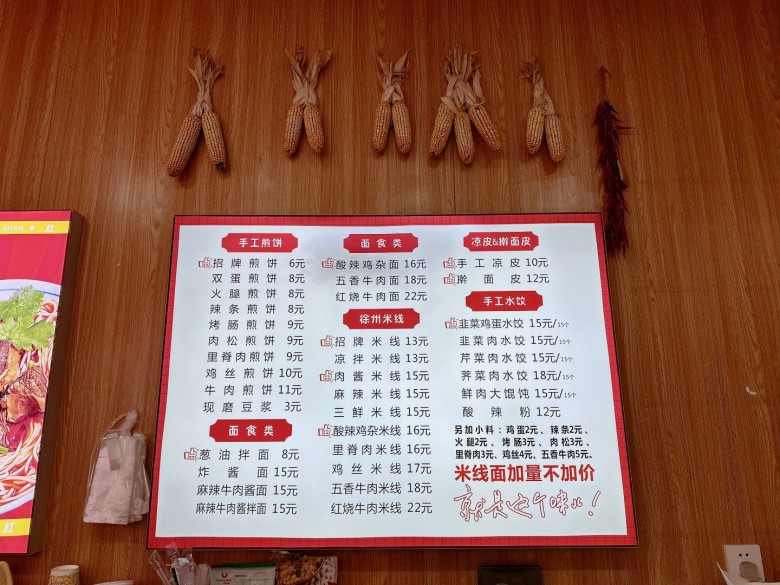 MIAN
红
手工煎饼
招牌煎饼 6元
双蛋煎饼 8元
火腿煎饼 8元
辣条煎饼 8元
烤肠煎饼 9元
肉松煎饼 9元
里脊肉煎饼 9元
鸡丝煎饼 10元
牛肉煎饼 11元
现磨豆浆 3元
面食类
葱油拌面 8元
炸酱面 15元
麻辣牛肉酱面 15元
麻辣牛肉酱拌面 15元
面食类
酸辣鸡杂面 16元
五香牛肉面 18元
红烧牛肉面 22元
徐州米线
招牌米线 13元
凉拌米线 13元
肉酱米线 15元
麻辣米线 15元
三鲜米线 15元
酸辣鸡杂米线 16元
里脊肉米线 16元
鸡丝米线 17元
五香牛肉米线 18元
红烧牛肉米线 22元
凉皮&擀面皮
手工凉皮 10元
擀面皮 12元
手工水饺
韭菜鸡蛋水饺 15元/15个
韭菜肉水饺 15元/15个
芹菜肉水饺 15元/15个
荠菜肉水饺 18元/15个
鲜肉大馄饨 15元/15个
酸辣粉 12元
另加小料：鸡蛋2元、辣条2元、
火腿2元、烤肠3元、肉松3元、
里脊肉3元、鸡丝4元、五香牛肉5元。
米线面加量不加价
就是这个味儿！